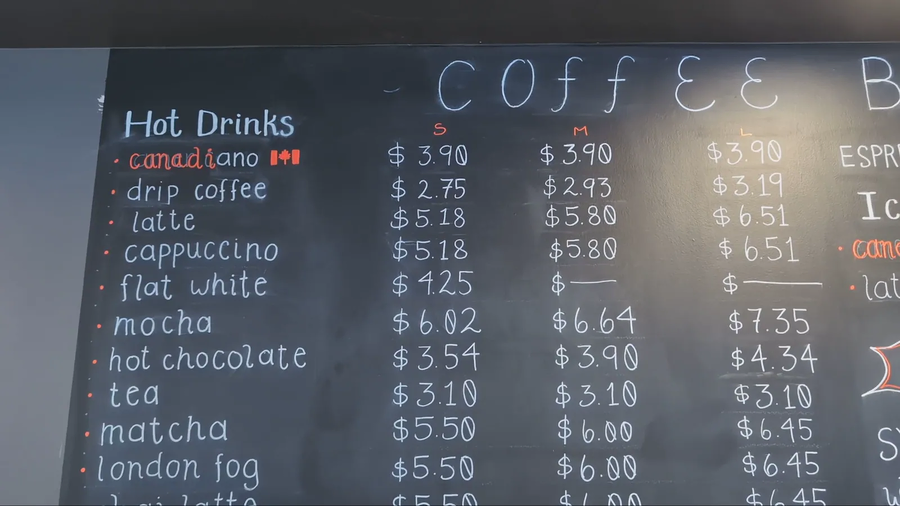 COffEE B
Hot Drinks
S M L
canadiano $3.90 $3.90 $3.90 ESPR
drip coffee $2.75 $2.93 $3.19
latte $5.18 $5.80 $6.51 Ic
cappuccino $5.18 $5.80 $6.51 cana
flat white $4.25 $— $— lat
mocha $6.02 $6.64 $7.35
hot chocolate $3.54 $3.90 $4.34
tea $3.10 $3.10 $3.10
matcha $5.50 $6.00 $6.45 S
london fog $5.50 $6.00 $6.45
latte $5.50 $6.00 $6.45